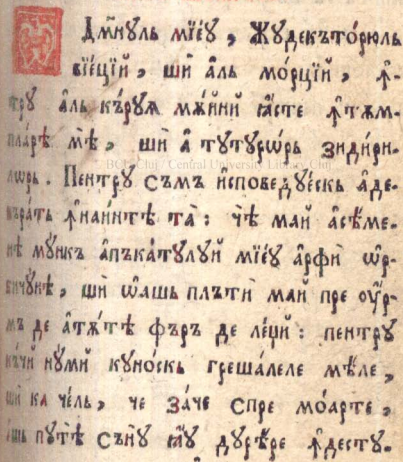 Дм҃нꙋль мїеꙋ, Жꙋдекътѡ́рюль
вїе́цїй, шѝ а҆́ль мо́рцїй, ꙟ҆-
трꙋ а҆ль къ́рꙋꙗ мѫ́йнй ꙗ҆сте ꙟ҆тѫм-
пла́рѣ мѣ̀, шѝ а҆ тꙋтꙋрѡ́рь зидири-
лѡрь. Пентрꙋ съмъ и҆споведꙋе́скь а҆де-
въра́ть ꙟ҆наи́нтѣ та̀: чѣ̀ май а҆се́ме-
нѣ мꙋ́нкъ а҆пъка́тꙋлꙋй мїеꙋ а҆рфѝ ѡ҆р-
вичꙋ́нѣ, шѝ ѡ҆ашь плътѝ май пре ꙋ҆р-
мъ де а҆тѫ́тѣ фъръ де ле́џи: пентрꙋ
къ́чй нꙋ́мй кꙋно́скь греша́леле мѣ́ле,
шѝ ка че́ль, че за́че спре моа́рте,
а҆шь пꙋтѣ̀ съ́нꙋ ꙗ҆ꙋ дꙋрѣ́ре ꙟ҆дестꙋ-
BCU Cluj / Central University Library Cluj